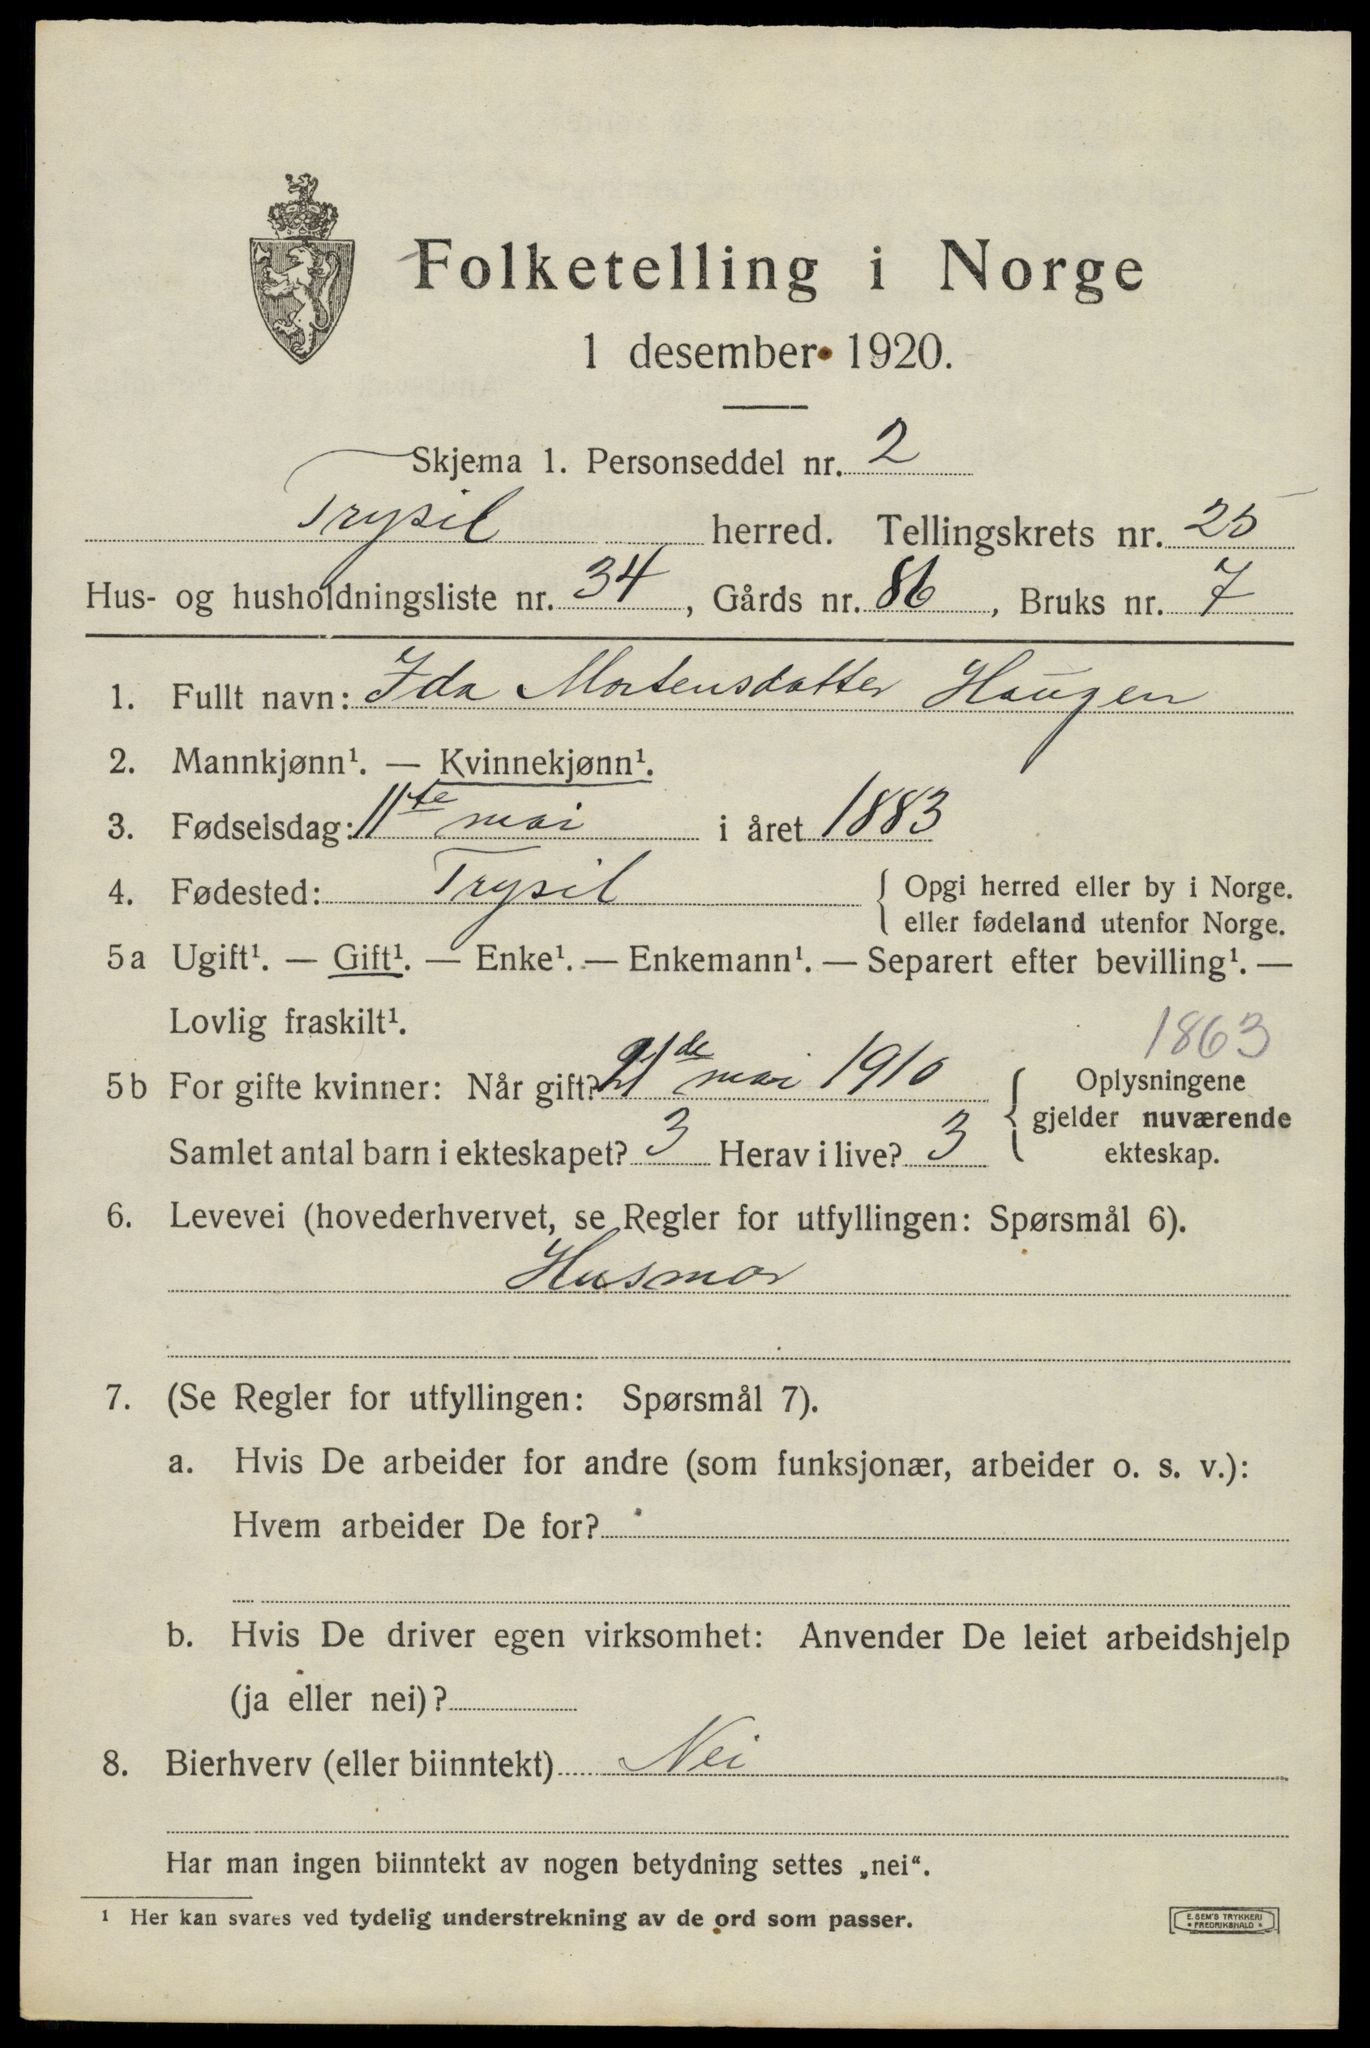 Folketelling i Norge
1 desember 1920.
Skjema 1. Personseddel nr. 2
Trysil herred. Tellingskrets nr. 25
Hus- og husholdningsliste nr. 34, Gårds nr. 86, Bruks nr. 7
1. Fullt navn: Ida Mortensdatter Haugen
2. Mannkjønn¹. — Kvinnekjønn¹.
3. Fødselsdag: 11te mai i året 1883
4. Fødested: Trysil { Opgi herred eller by i Norge.
eller fødeland utenfor Norge.
5a Ugift¹. — Gift¹. — Enke¹. — Enkemann¹. — Separert efter bevilling¹. —
Lovlig fraskilt¹.
1863
5b For gifte kvinner: Når gift? 21de mai 1910 { Oplysningene
gjelder nuværende
ekteskap.
Samlet antal barn i ekteskapet? 3 Herav i live? 3
6. Levevei (hovederhvervet, se Regler for utfyllingen: Spørsmål 6).
Husmor
7. (Se Regler for utfyllingen: Spørsmål 7).
a. Hvis De arbeider for andre (som funksjonær, arbeider o. s. v.):
Hvem arbeider De for?
b. Hvis De driver egen virksomhet: Anvender De leiet arbeidshjelp
(ja eller nei)?
8. Bierhverv (eller biinntekt) Nei
Har man ingen biinntekt av nogen betydning settes „nei“.
¹ Her kan svares ved tydelig understrekning av de ord som passer.
E. SEM'S TRYKKERI
* FREDRIKSHALD *